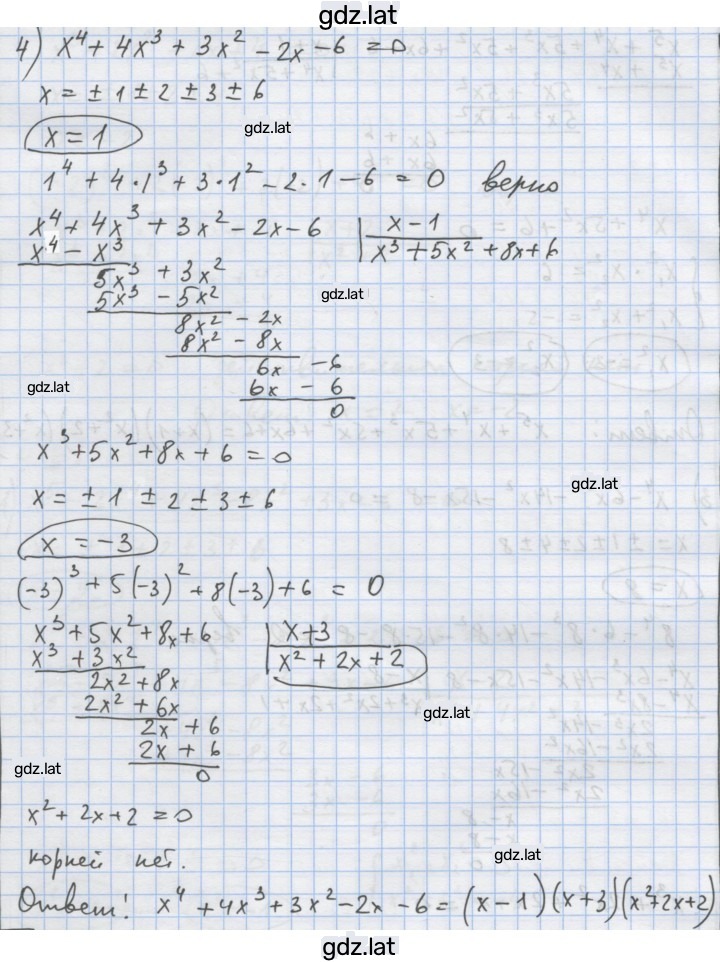 gdz.lat
4) x⁴ + 4x³ + 3x² - 2x - 6 = 0
x = ± 1 ± 2 ± 3 ± 6
gdz.lat
x = 1
1⁴ + 4·1³ + 3·1² - 2·1 - 6 = 0 верно
x⁴ + 4x³ + 3x² - 2x - 6 | x - 1
x⁴ - x³ | x³ + 5x² + 8x + 6
5x³ + 3x²
5x³ - 5x² gdz.lat
8x² - 2x
8x² - 8x
6x - 6
gdz.lat 6x - 6
0
x³ + 5x² + 8x + 6 = 0
gdz.lat
x = ± 1 ± 2 ± 3 ± 6
x = -3
(-3)³ + 5(-3)² + 8(-3) + 6 = 0
x³ + 5x² + 8x + 6 | x+3
x³ + 3x² | x² + 2x + 2
2x² + 8x
2x² + 6x
gdz.lat
2x + 6
2x + 6
gdz.lat
0
x² + 2x + 2 = 0
корней нет.
gdz.lat
Ответ: x⁴ + 4x³ + 3x² - 2x - 6 = (x - 1)(x + 3)(x² + 2x + 2)
gdz.lat